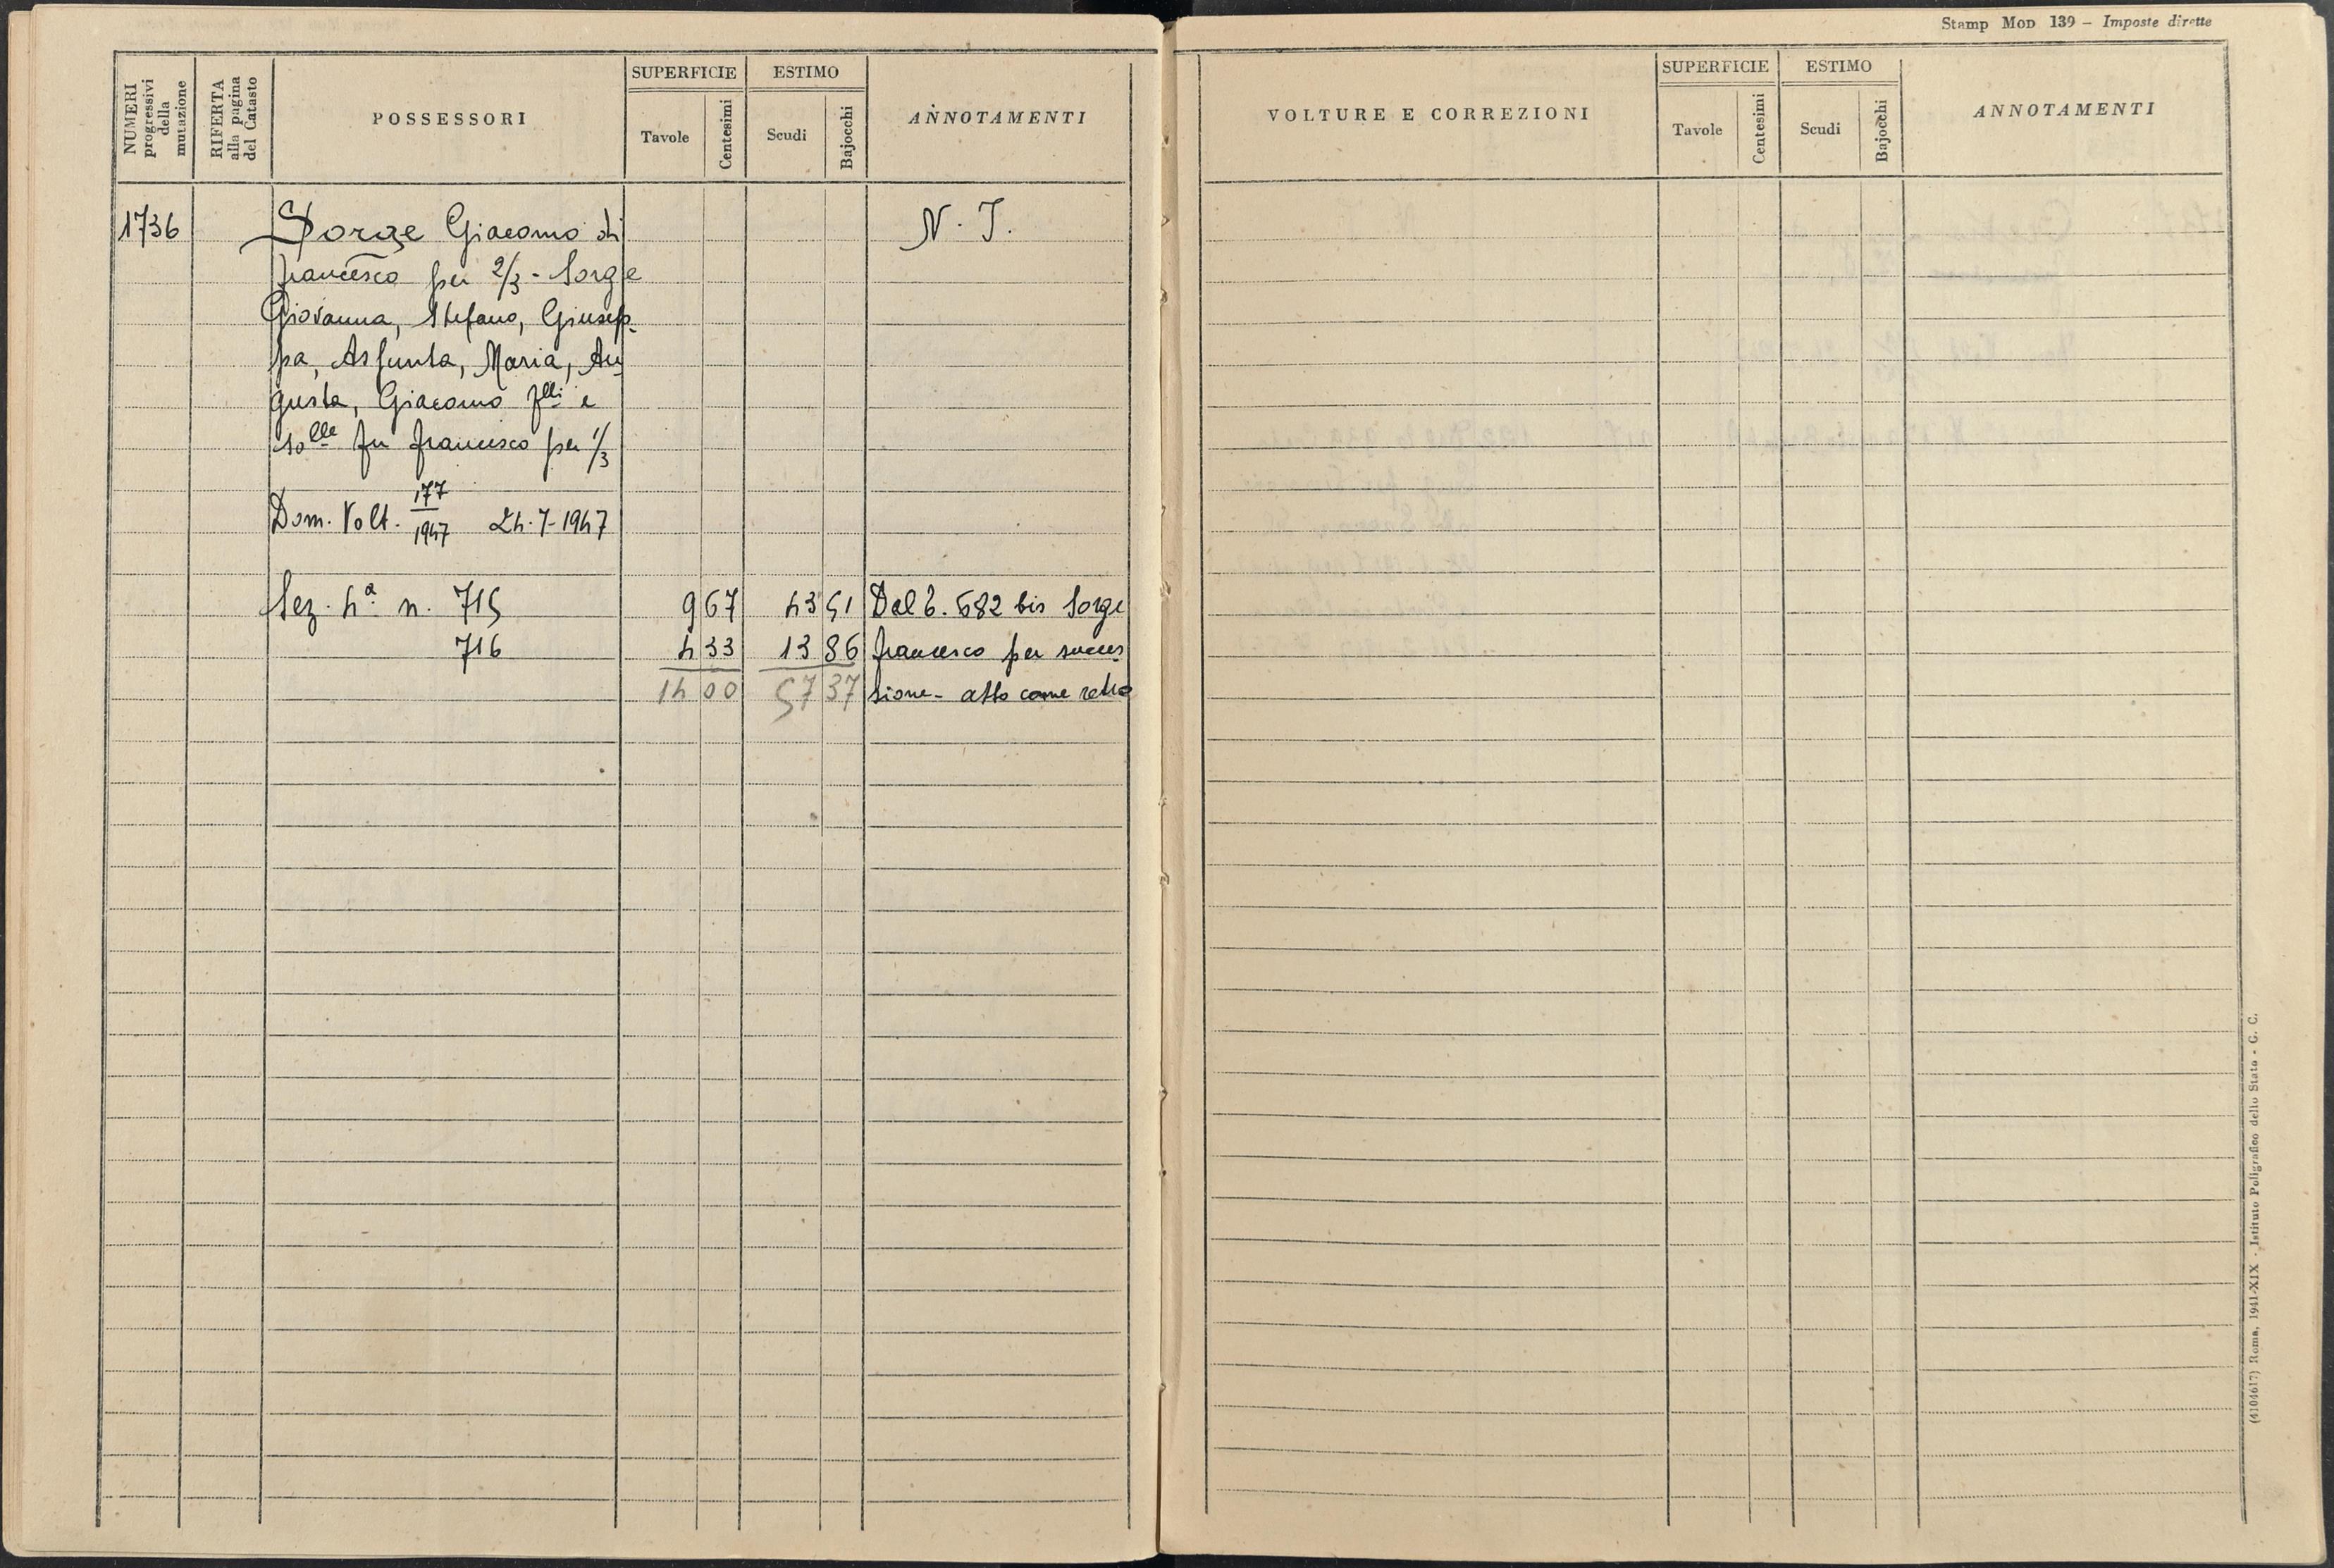 Stamp Mod 139 – Imposte dirette
NUMERI progressivi della mutazione
RIFERTA alla pagina del Catasto
POSSESSORI
SUPERFICIE
Tavole
Centesimi
ESTIMO
Scudi
Bajocchi
ANNOTAMENTI
1736 Sorge Giacomo di N. I.
francesco per 2/3 - Sorge
Giovanna, Stefano, Giusep-
pa, Assunta, Maria, Au
gusta, Giacomo flli e
solle fu francesco per 1/3
Dom. Volt. 177/1947 24-7-1947
Sez. 4ª n. 715 9 67 43 51 Dal b. 582 bis Sorge
716 4 33 13 86 francesco per succes
14 00 57 37 sione - atto come retro
VOLTURE E CORREZIONI
SUPERFICIE
Tavole
Centesimi
ESTIMO
Scudi
Bajocchi
ANNOTAMENTI
(4104617) Roma, 1941-XIX - Istituto Poligrafico dello Stato - G. C.